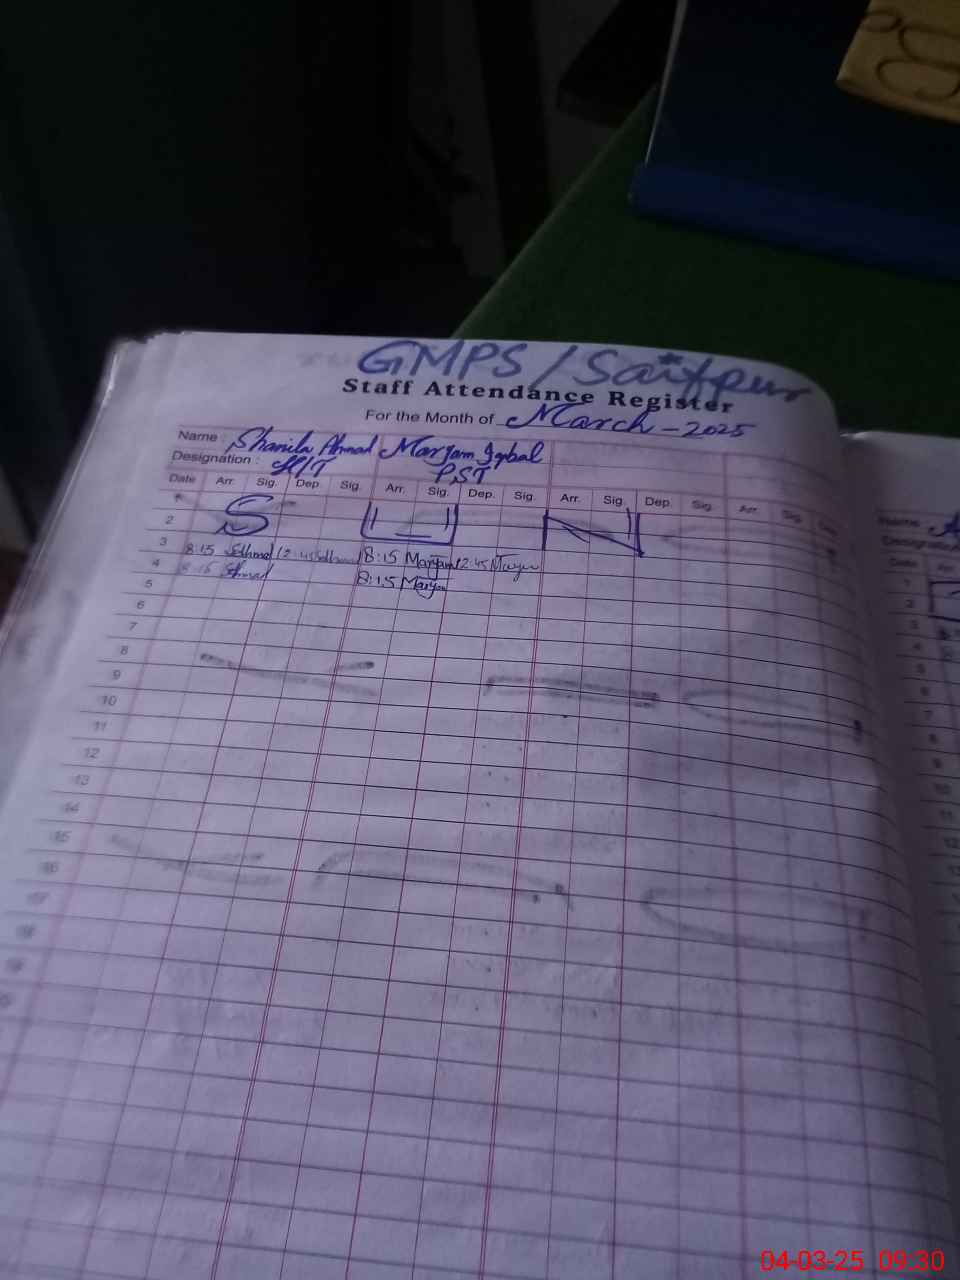 GMPS/Saifpur
Staff Attendance Register
For the Month of March-2025
Name : Shamila Ahmad Maryam Iqbal
Designation : H/T PST
Date Arr. Sig. Dep. Sig. Arr. Sig. Dep. Sig. Arr. Sig. Dep. Sig. Arr. Sig.
1
2 S U N
3 8:15 SAhmad 12:45 SAhmad 8:15 Maryam 12:45 Maryam
4 8:15 SAhmad 8:15 Maryam
5
6
7
8
9
10
11
12
13
14
15
16
17
Name
Date
1
2
3
4
5
6
7
8
9
10
11
12
04-03-25 09:30